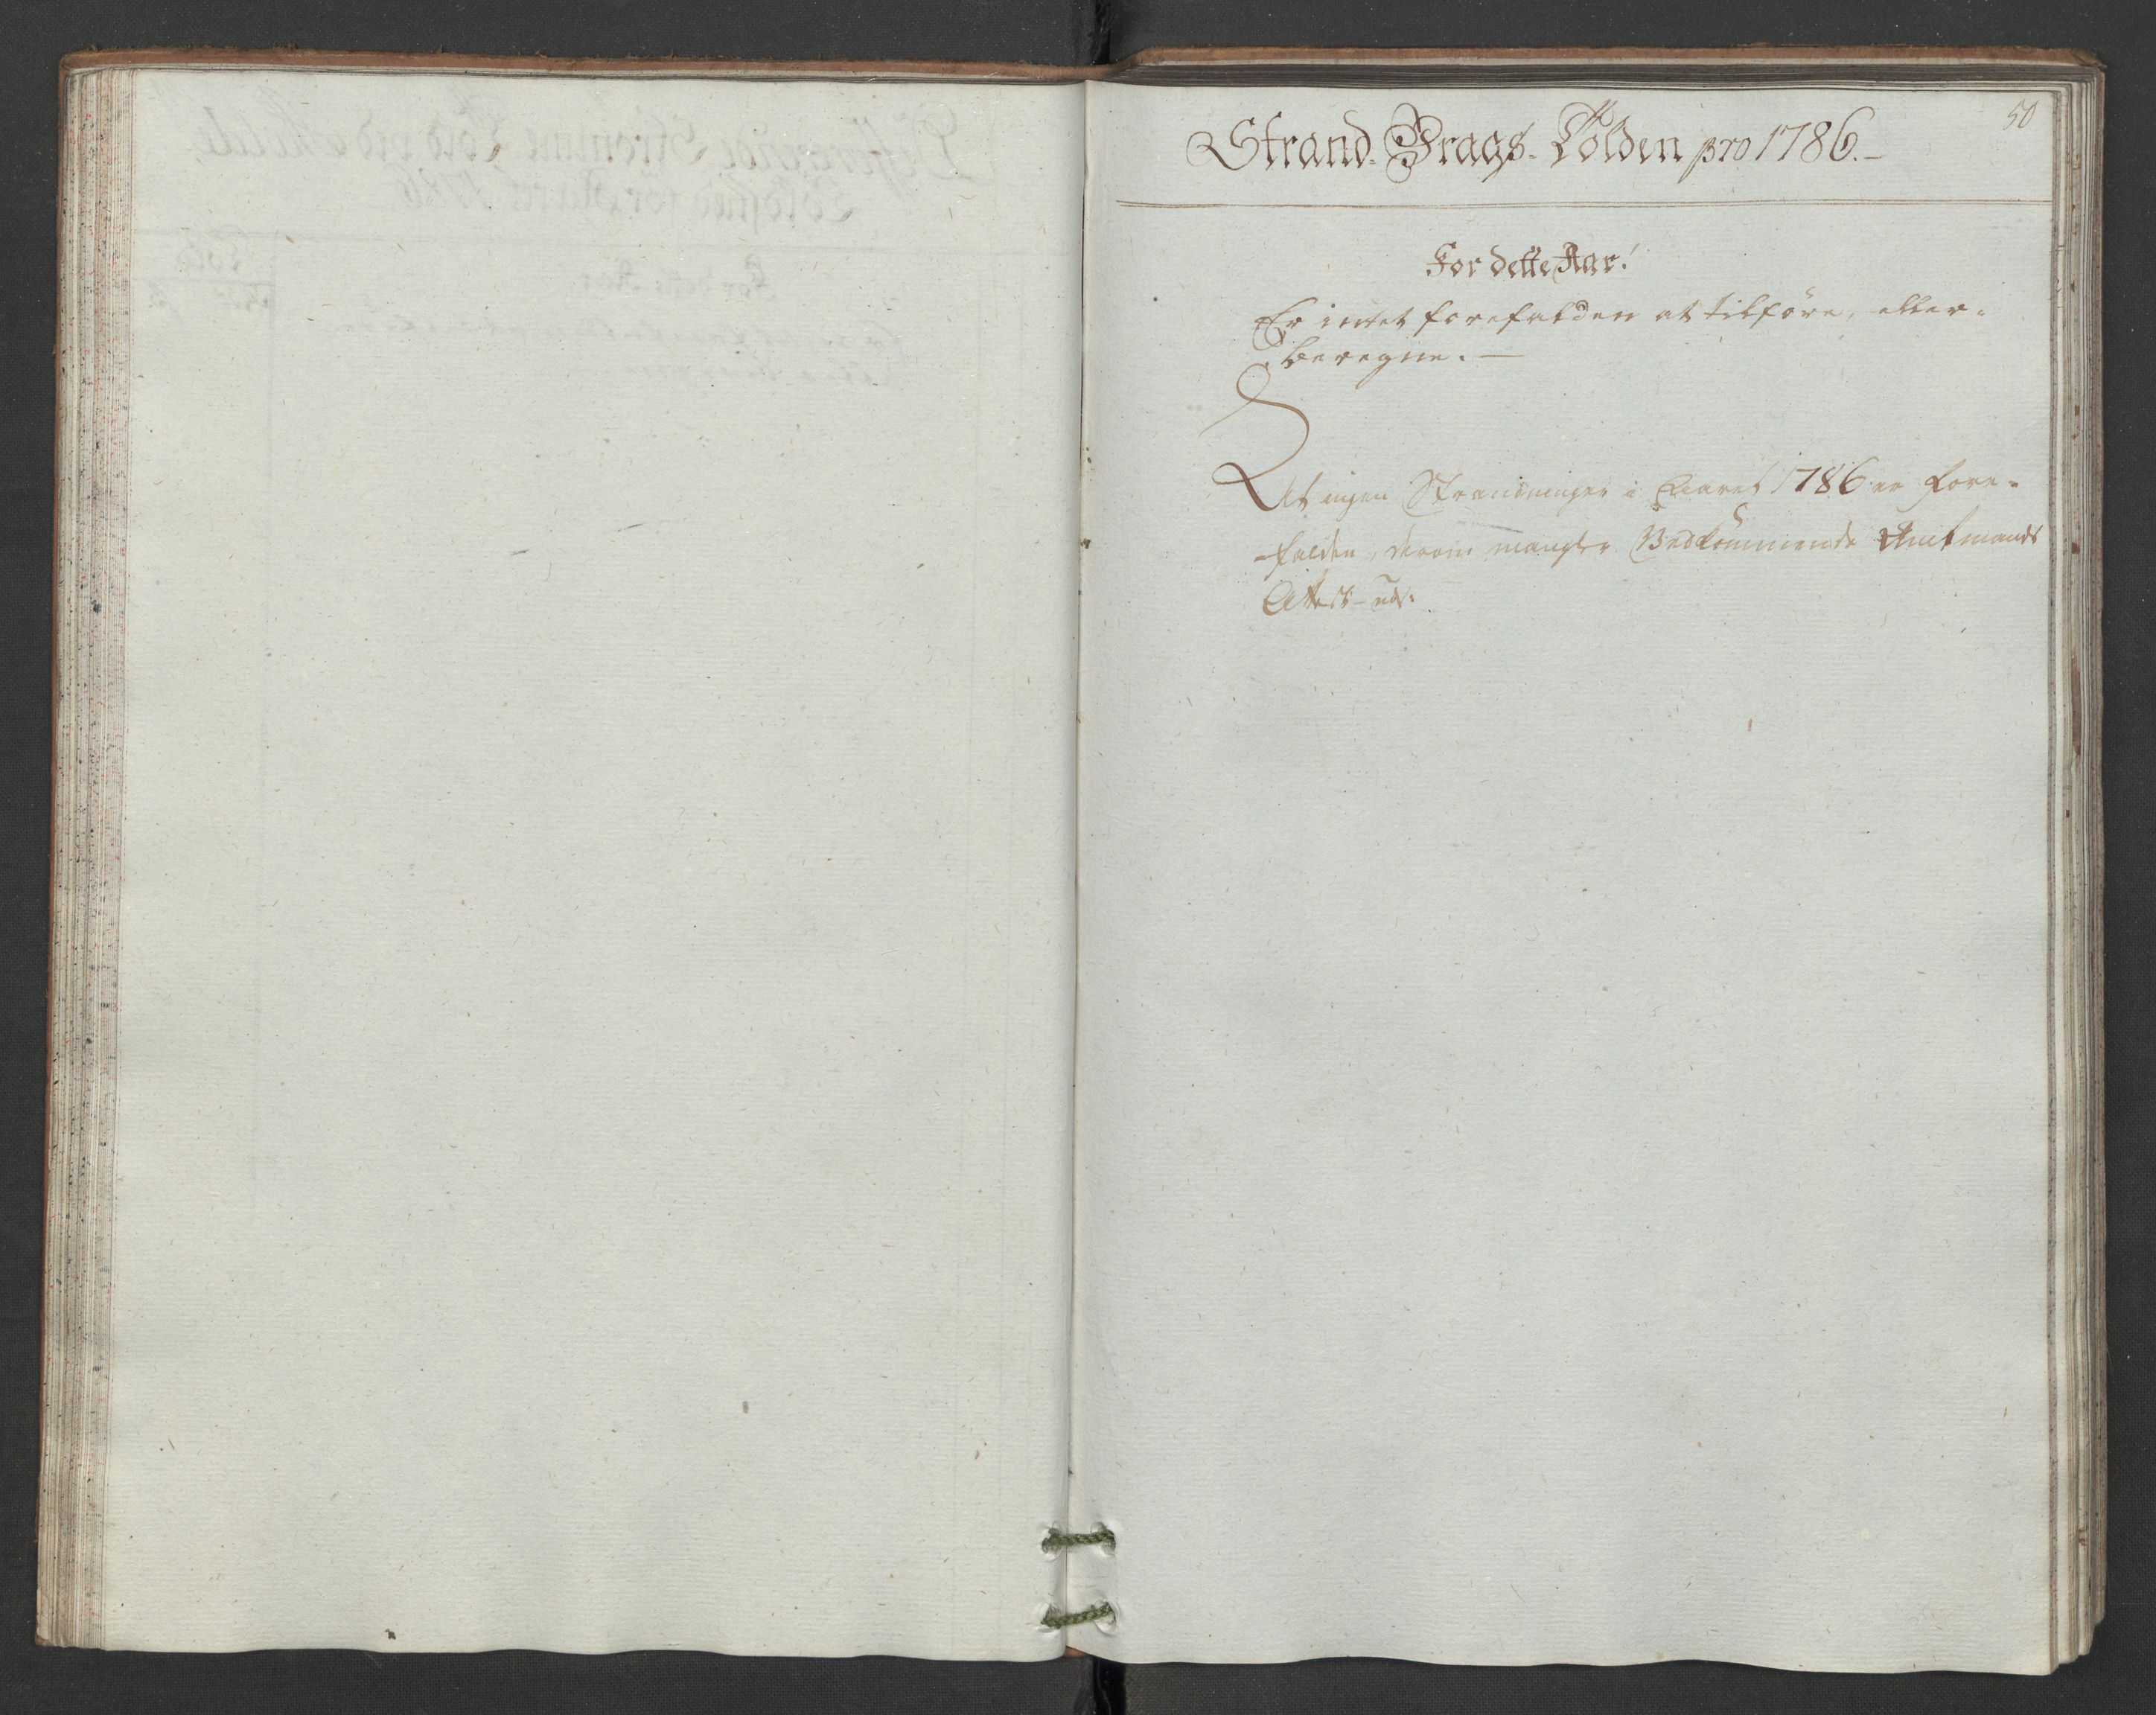 50
Strand-Vrags-Tolden pro 1786.-
For dette Aar!
Er intet forefalden at tilføre, eller-
beregne. —
At ingen Strandinger i Aaret 1786 er fore-
-falden, derom mangler Vedkommende Amtmands
Attest